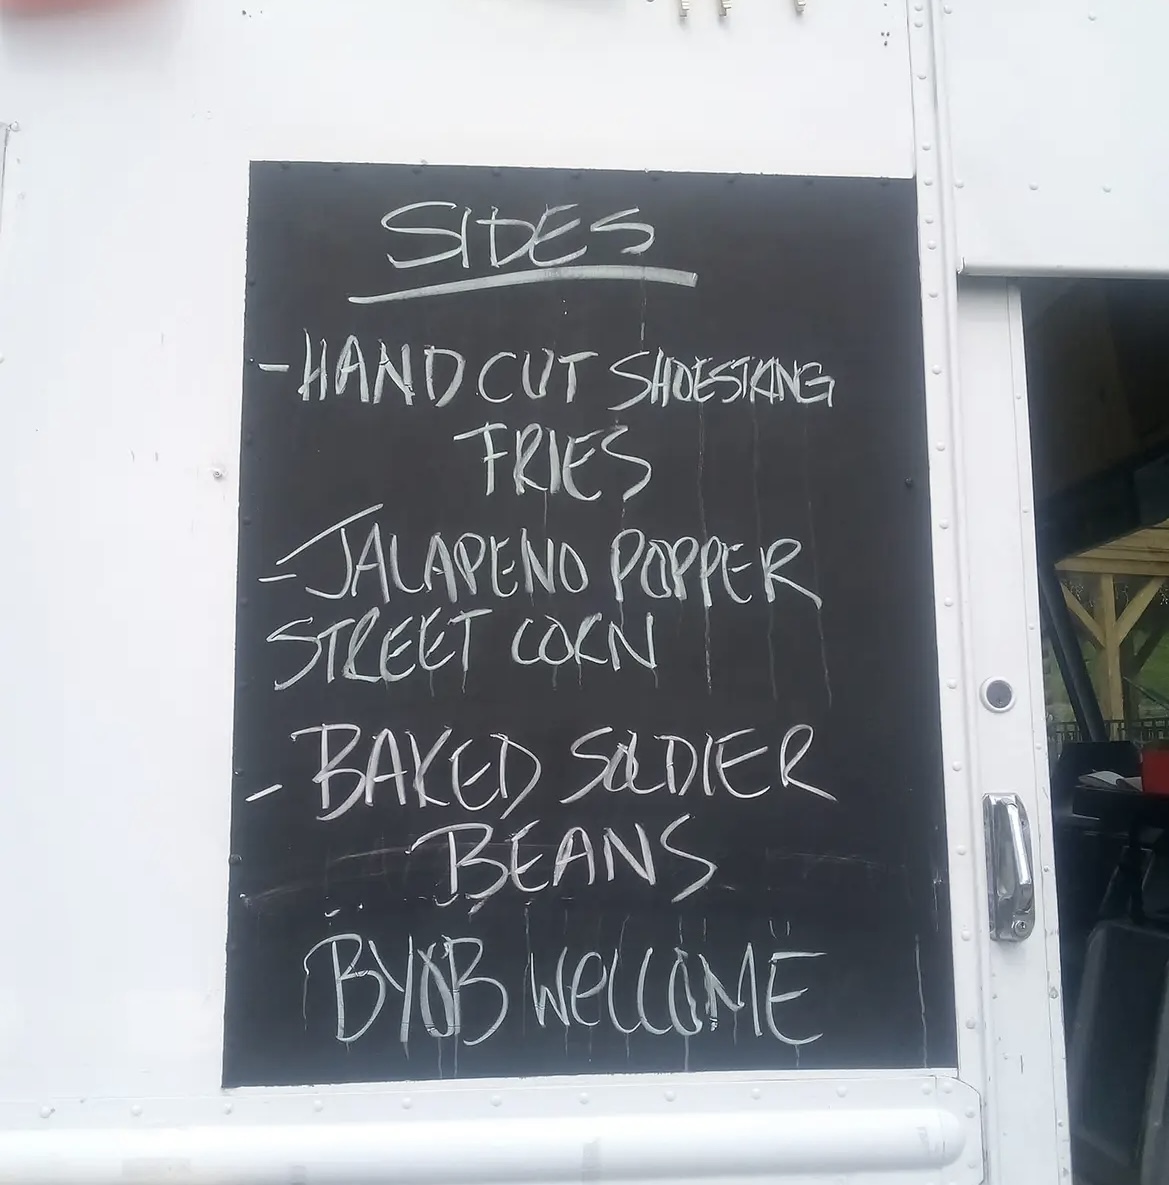 SIDES
- HAND CUT SHOESTRING
FRIES
- JALAPENO POPPER
STREET CORN
- BAKED SOLDIER
BEANS
BYOB WELCOME